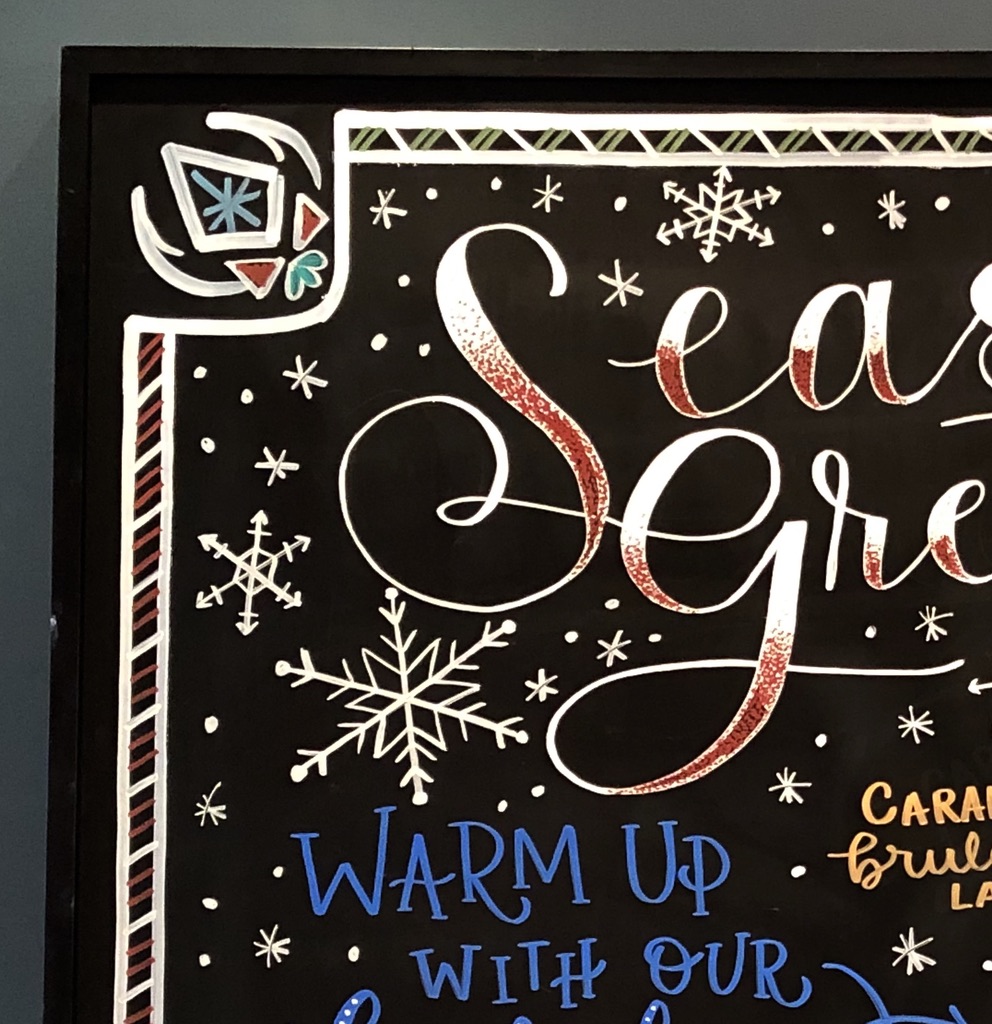 Seas
Gre
WARM UP
WITH OUR
CARAM
brule
LA